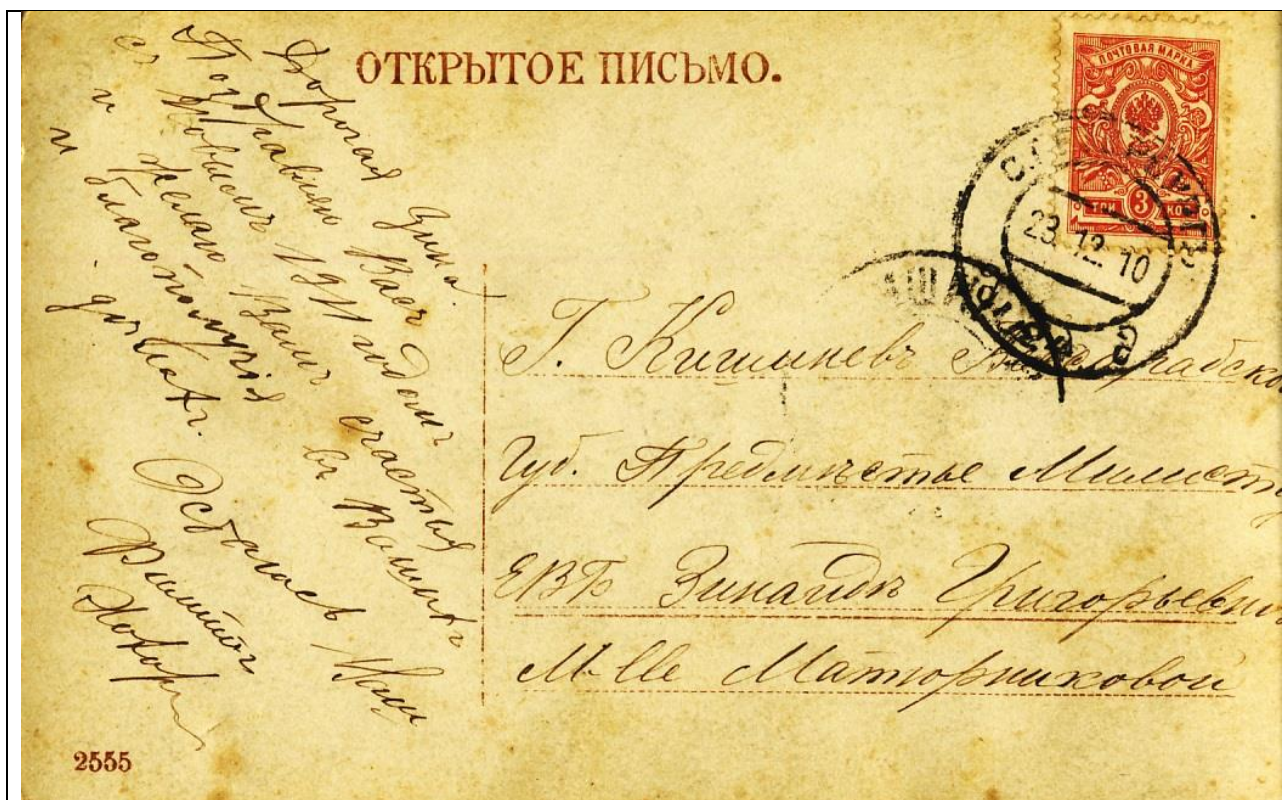 ОТКРЫТОЕ ПИСЬМО.
ПОЧТОВАЯ МАРКА
ТРИ 3 КОП
23.12.10
Дорогая Зина.
Поздравляю Васъ
съ Новымъ 1911 годомъ
и желаю Вамъ счастья
и благополучія въ Вашихъ
дѣлахъ.
Г. Кишиневъ Бессарабско
Губ. Предмѣстье
ЕВБ Зинаидѣ Григорьевн
M-lle Маторниковой
2555